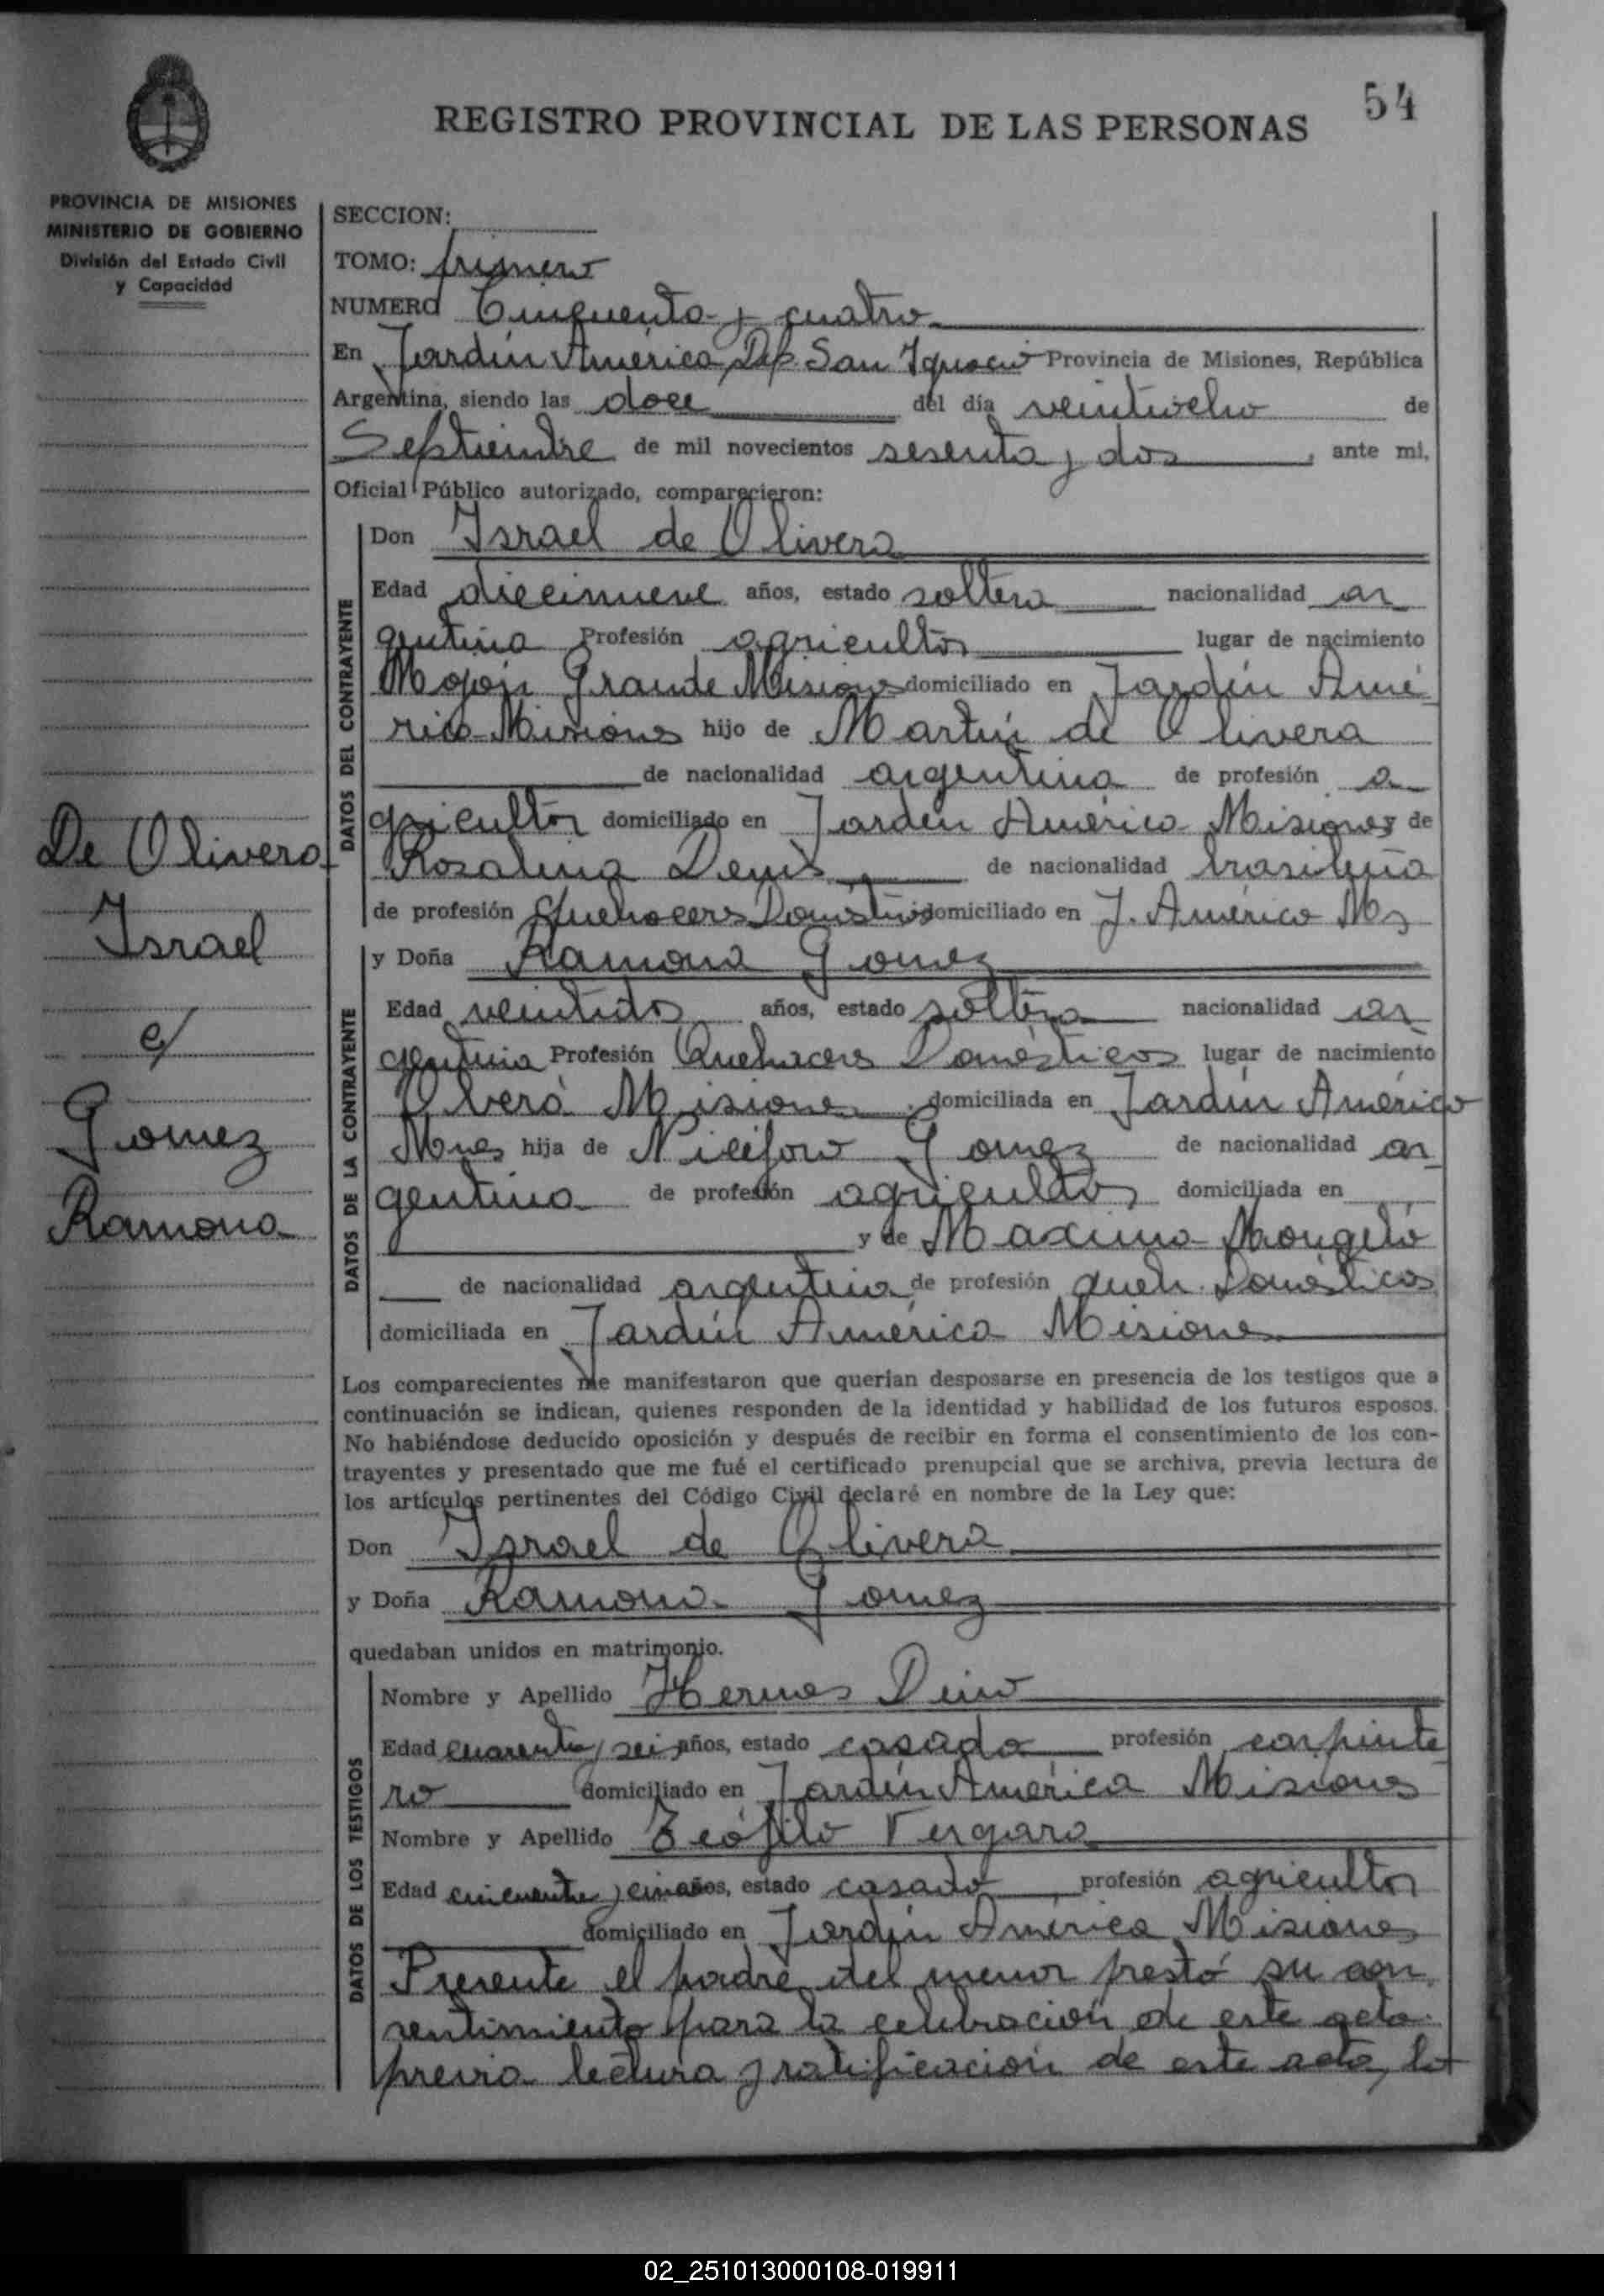 54
REGISTRO PROVINCIAL DE LAS PERSONAS
PROVINCIA DE MISIONES
MINISTERIO DE GOBIERNO
División del Estado Civil
y Capacidad
SECCION:
TOMO: primero
NUMERO Cinquenta y cuatro
En Jardín América Dep. San Ignacio Provincia de Misiones, República
Argentina, siendo las doce del día veintiocho de
Septiembre de mil novecientos sesenta y dos, ante mi,
Oficial Público autorizado, comparecieron:
DATOS DEL CONTRAYENTE
Don Israel de Olivera
Edad diecinueve años, estado soltero nacionalidad ar
gentina Profesión agricultor lugar de nacimiento
Mojón Grande Misiones domiciliado en Jardín Amé
rica Misiones hijo de Martín de Olivera
de nacionalidad argentina de profesión a
gricultor domiciliado en Jardín América Misiones y de
Rosalina Denis de nacionalidad brasileña
de profesión Quehaceres Domésticos domiciliado en J. América Ms
De Olivera
Israel
c/
Gomez
Ramona
DATOS DE LA CONTRAYENTE
y Doña Ramona Gomez
Edad veintidos años, estado soltera nacionalidad ar
gentina Profesión Quehaceres Domésticos lugar de nacimiento
Oberá Misiones domiciliada en Jardín América
Mnes hija de Niceforo Gomez de nacionalidad ar
gentina de profesión agricultor domiciliada en
y de Maxima Mongeló
de nacionalidad argentina de profesión queh. Domésticos
domiciliada en Jardín América Misiones
Los comparecientes me manifestaron que querían desposarse en presencia de los testigos que a
continuación se indican, quienes responden de la identidad y habilidad de los futuros esposos.
No habiéndose deducido oposición y después de recibir en forma el consentimiento de los con-
trayentes y presentado que me fué el certificado prenupcial que se archiva, previa lectura de
los artículos pertinentes del Código Civil declaré en nombre de la Ley que:
Don Israel de Olivera
y Doña Ramona Gomez
quedaban unidos en matrimonio.
DATOS DE LOS TESTIGOS
Nombre y Apellido Hermes
Edad cuarenta y seis años, estado casado profesión carpinte
ro domiciliado en Jardín América Misiones
Nombre y Apellido Teófilo Vergara
Edad cincuenta y años, estado casado profesión agricultor
domiciliado en Jardín América Misiones
Presente el padre del menor prestó su con
sentimiento para la celebración de este acto.
previa lectura y ratificación de este acta, lo
02_251013000108-019911